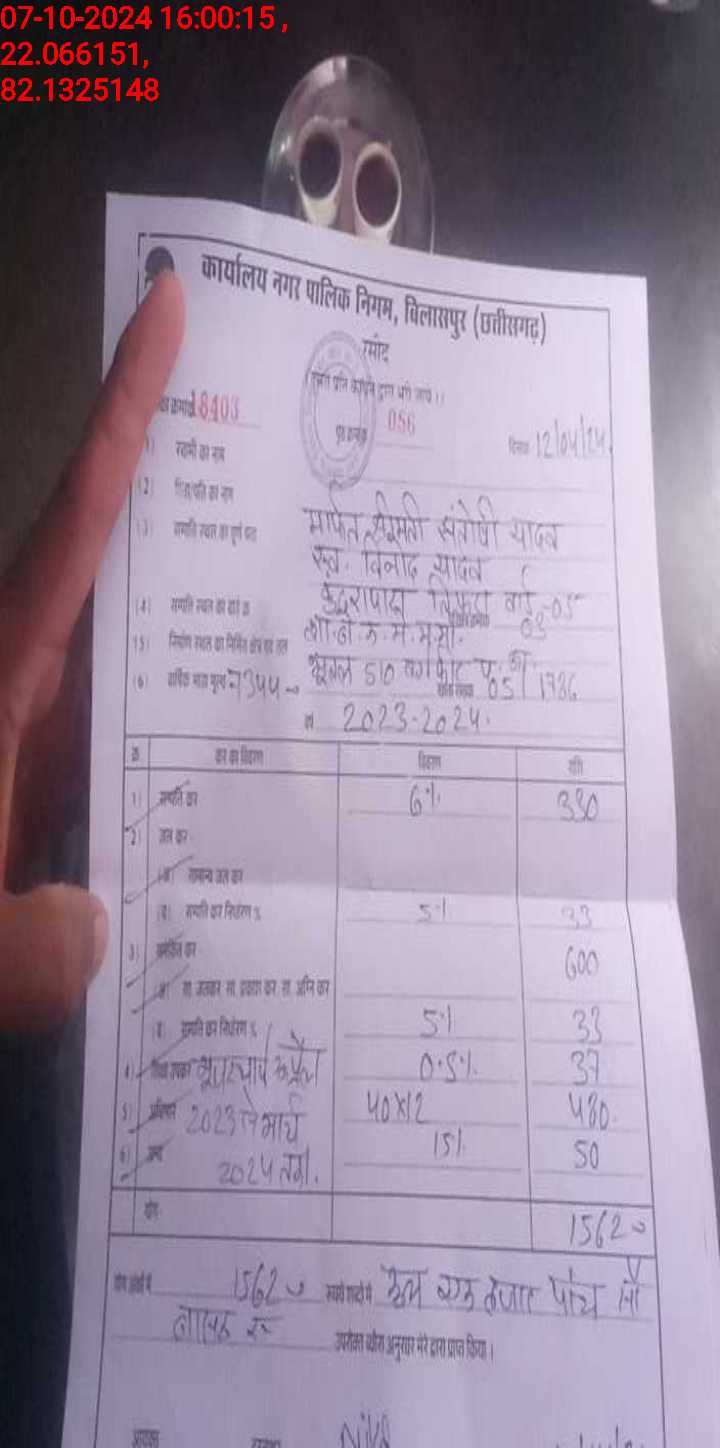 07-10-2024 16:00:15,
22.066151,
82.1325148
कार्यालय नगर पालिक निगम, बिलासपुर (छत्तीसगढ़)
रसीद
18403
056
दिनांक 12/04/24
1) स्वामी का नाम
(2) पिता/पति का नाम
(3) सम्पत्ति स्थल का पूर्ण पता
मार्फत श्रीमती संतोषी यादव
स्व. विनोद यादव
(4) सम्पत्ति स्थल का वार्ड क्र
वार्ड-05
(5) निर्माण स्थल का निर्मित क्षेत्र एवं तल
(6) वार्षिक भाड़ा मूल्य 7344
510 वर्गफीट
05/1736
वर्ष 2023-2024.
क्र कर का विवरण विवरण राशि
1) सम्पत्ति कर 6% 330
2) जल कर
अ) सामान्य जल कर
ब) सम्पत्ति कर निर्धारण % 5% 33
3) समेकित कर 600
अ) सा जलकर सा प्रकाश कर सा अग्नि कर
ब) सम्पत्ति कर निर्धारण % 5% 33
4) शिक्षा उपकर 0.5% 37
अप्रैल
5) 2023 से मार्च 40x12 480.
6) अन्य 2024 तक. 15% 50
योग 1562
योग अंकों में 1562 रूपये शब्दों में कुल एक हजार पांच सौ
बासठ रू
उपरोक्त ब्योरा अनुसार मेरे द्वारा प्राप्त किया।